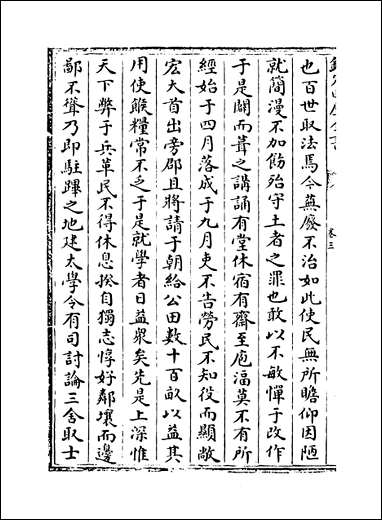 也百世取法焉今蕪廢不治如此使民無所瞻仰因陋
就簡漫不加飭殆守土者之罪也敢以不敏憚于改作
于是闢而葺之講誦有堂休宿有齋至庖湢莫不有所
經始于四月落成于九月吏不告勞民不知役而顯敞
宏大首出旁郡且將請于朝給公田數十百畝以益其
用使餱糧常不乏于是就學者日益衆矣先是上深惟
天下弊于兵革民不得休息揆自獨志惇好鄰壤而邊
鄙不聳乃即駐蹕之地建太學令有司討論三舍取士